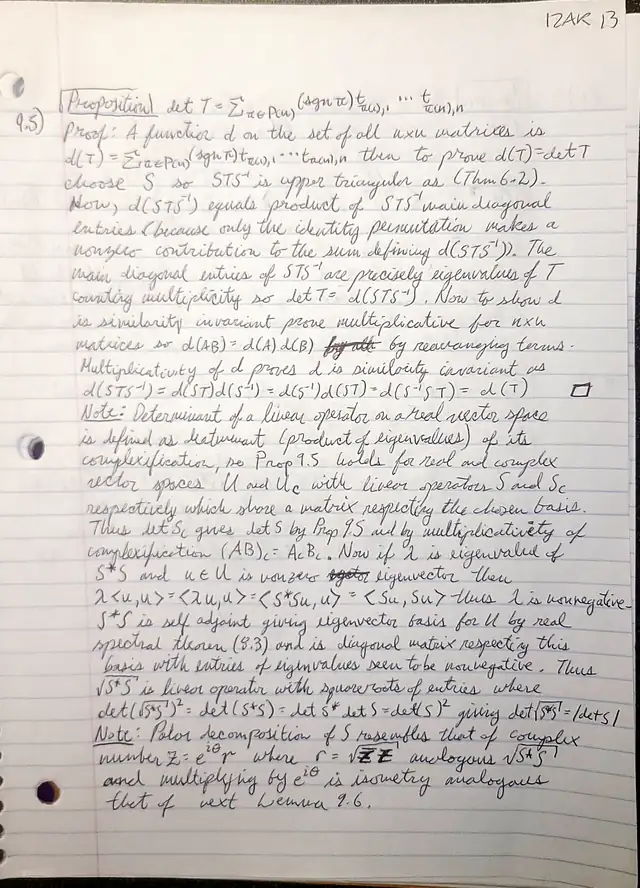 IZAK 13
9.5) Proposition det T = Σπ∈P(n) (sgn π) tπ(1),1 ... tπ(n),n
Proof: A function d on the set of all nxn matrices is
d(T) = Σπ∈P(n) (sgn π) tπ(1),1 ... tπ(n),n then to prove d(T)=det T
choose S so STS⁻¹ is upper triangular as (Thm 6.2).
Now, d(STS⁻¹) equals product of STS⁻¹ main diagonal
entries (because only the identity permutation makes a
nonzero contribution to the sum defining d(STS⁻¹)). The
main diagonal entries of STS⁻¹ are precisely eigenvalues of T
counting multiplicity so det T = d(STS⁻¹). Now to show d
is similarity invariant prove multiplicative for nxn
matrices so d(AB) = d(A)d(B) by rearranging terms.
Multiplicativity of d proves d is similarity invariant as
d(STS⁻¹) = d(ST)d(S⁻¹) = d(S⁻¹)d(ST) = d(S⁻¹ST) = d(T) □
Note: Determinant of a linear operator on a real vector space
is defined as determinant (product of eigenvalues) of its
complexification, so Prop 9.5 holds for real and complex
vector spaces U and Uc with linear operators S and Sc
respectively which share a matrix respecting the chosen basis.
Thus det Sc gives det S by Prop 9.5 and by multiplicativity of
complexification (AB)c = AcBc. Now if λ is eigenvalue of
S*S and u∈U is nonzero eigenvector then
λ<u,u> = <λu,u> = <S*Su,u> = <Su,Su> thus λ is nonnegative.
S*S is self adjoint giving eigenvector basis for U by real
spectral theorem (8.3) and is diagonal matrix respecting this
basis with entries of eigenvalues seen to be nonnegative. Thus
√S*S is linear operator with squareroots of entries where
det(√S*S)² = det(S*S) = det S* det S = det(S)² giving det√S*S = |det S|
Note: Polar decomposition of S resembles that of complex
number z = e^iθ r where r = √z̄z analogous √S*S
and multiplying by e^iθ is isometry analogous
that of next Lemma 9.6.